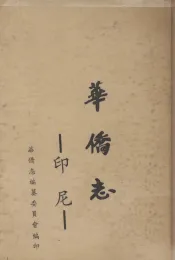 華僑志
—印尼—
華僑志編纂委員會編印